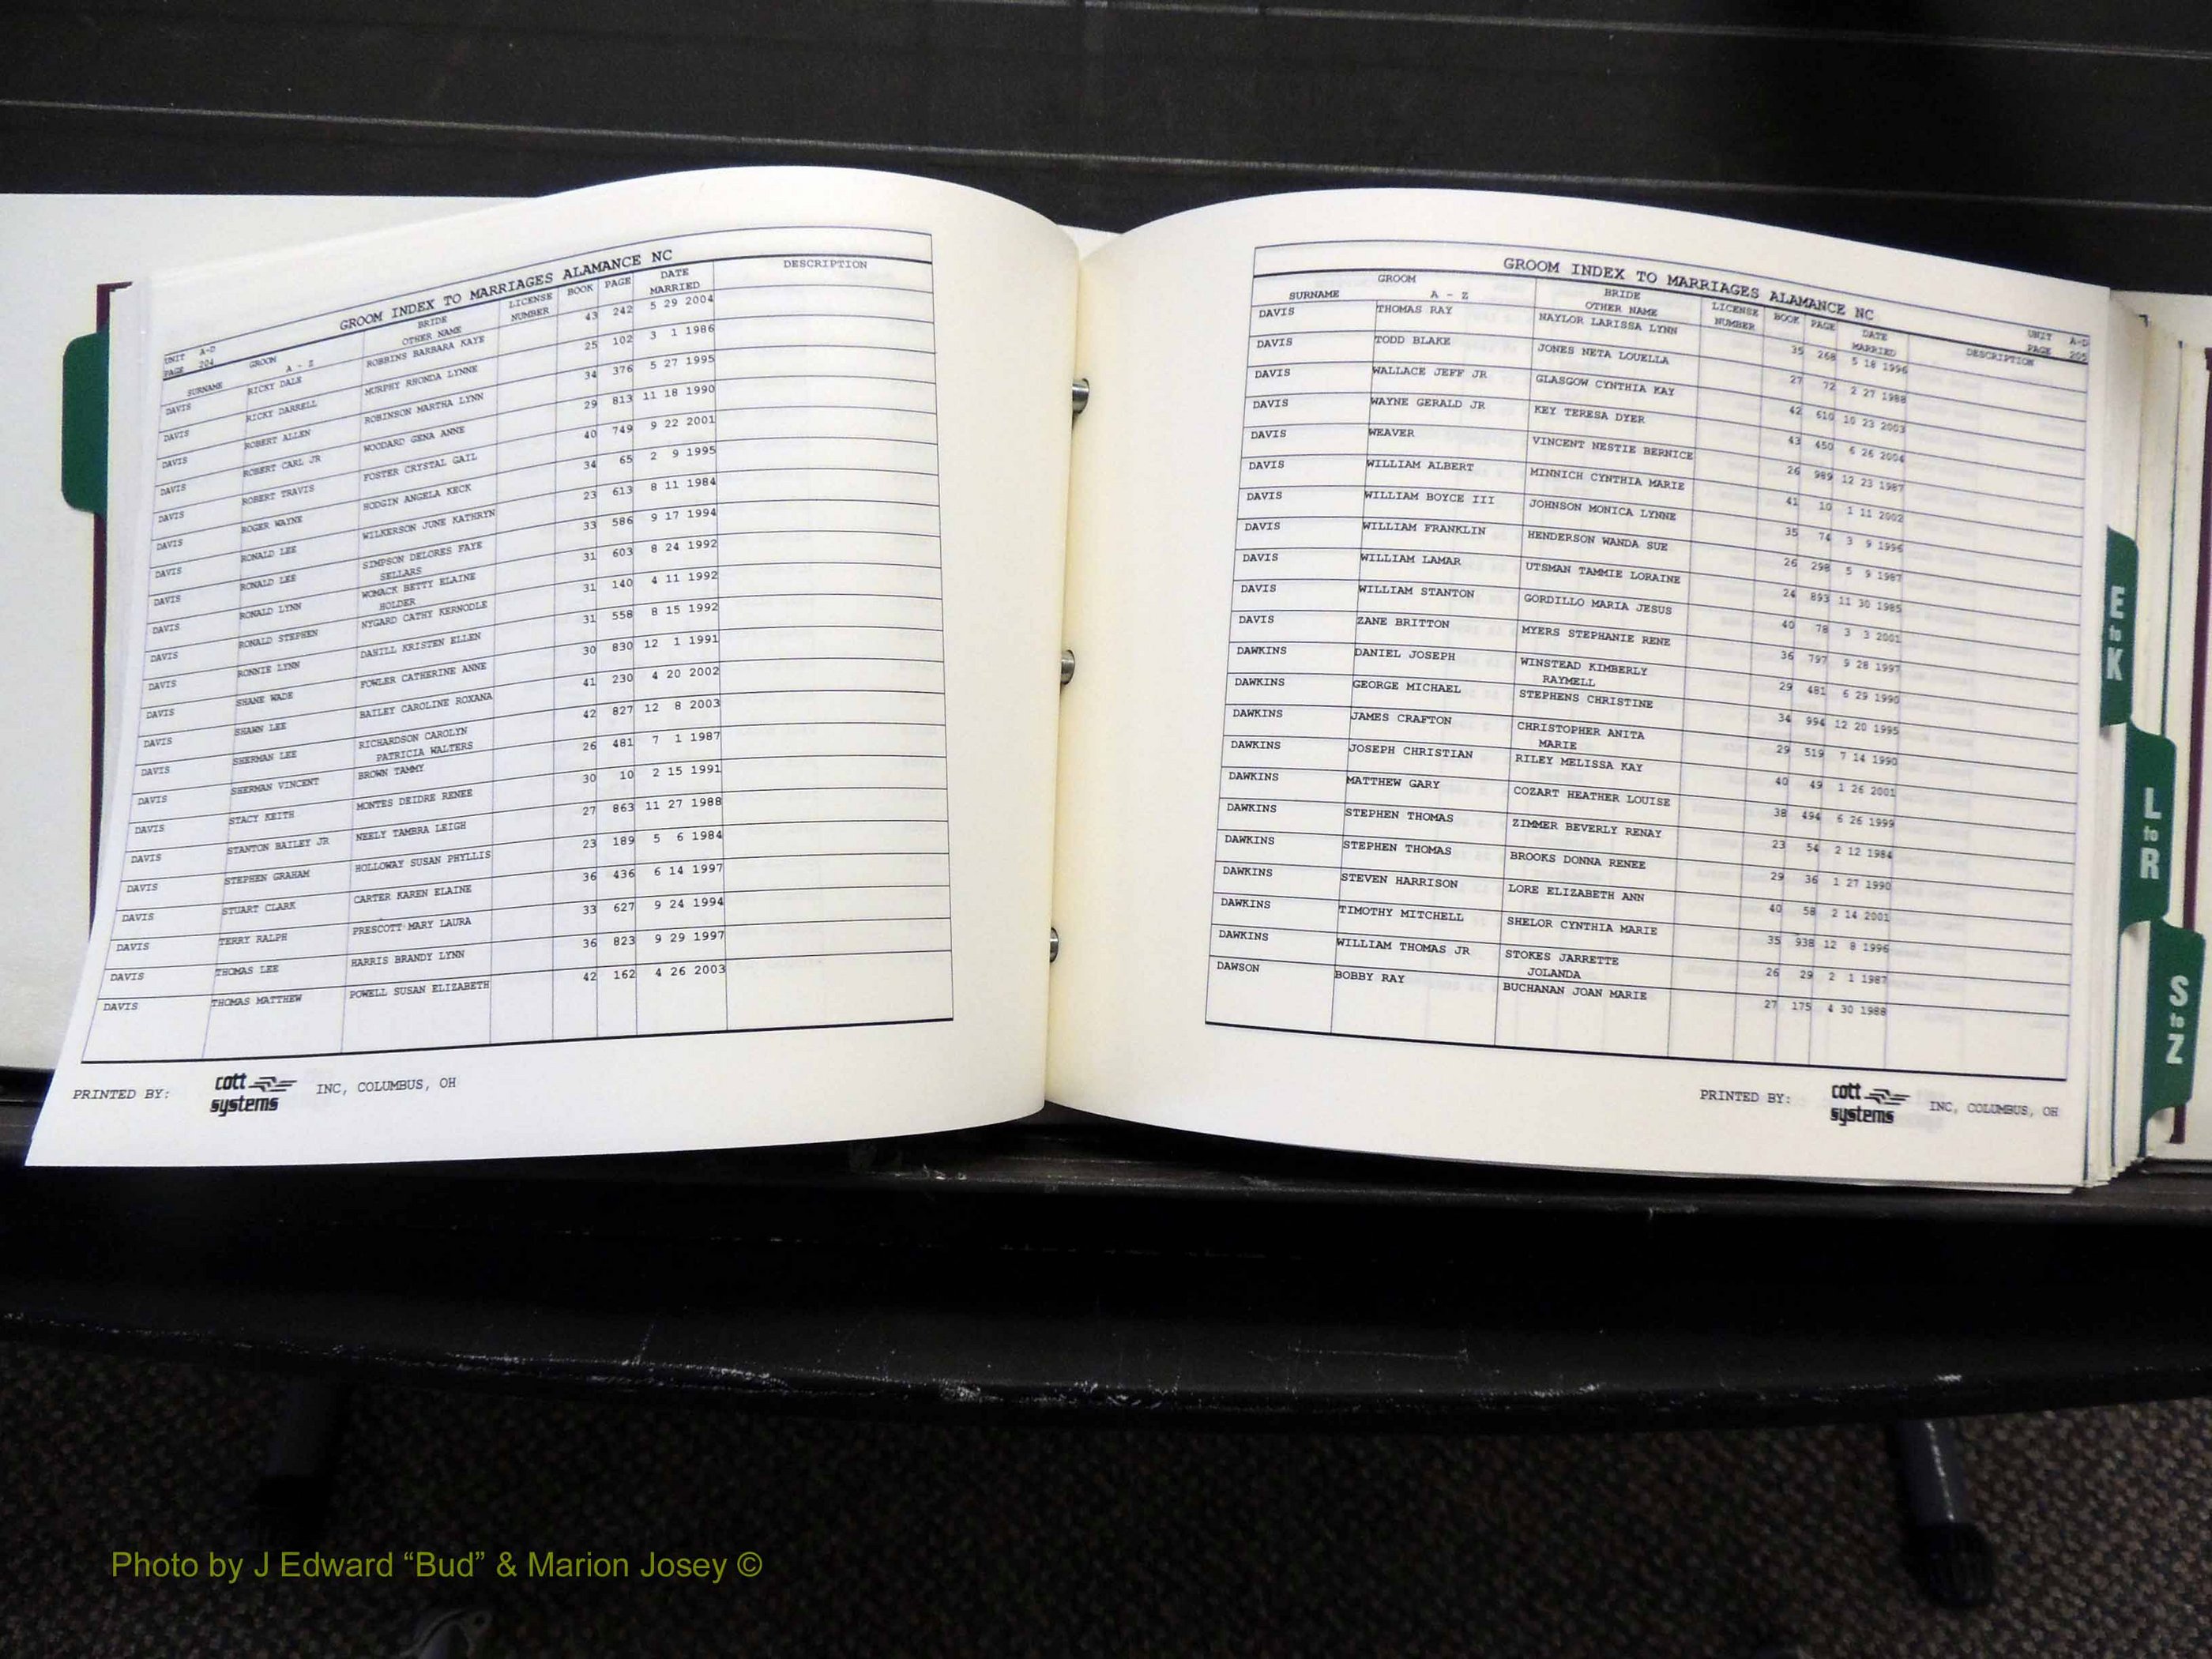 GROOM INDEX TO MARRIAGES ALAMANCE NC
UNIT A-D
PAGE 204
SURNAME GROOM A - Z BRIDE OTHER NAME LICENSE NUMBER BOOK PAGE DATE MARRIED DESCRIPTION
DAVIS RICKY DALE ROBBINS BARBARA KAYE 43 242 5 29 2004
DAVIS RICKY DARRELL MURPHY RHONDA LYNNE 25 102 3 1 1986
DAVIS ROBERT ALLEN ROBINSON MARTHA LYNN 34 376 5 27 1995
DAVIS ROBERT CARL JR WOODARD GENA ANNE 29 813 11 18 1990
DAVIS ROBERT TRAVIS FOSTER CRYSTAL GAIL 40 749 9 22 2001
DAVIS ROGER WAYNE HODGIN ANGELA KECK 34 65 2 9 1995
DAVIS RONALD LEE WILKERSON JUNE KATHRYN 23 613 8 11 1984
DAVIS RONALD LEE SIMPSON DELORES FAYE 33 586 9 17 1994
SELLARS
DAVIS RONALD LYNN WOMACK BETTY ELAINE 31 603 8 24 1992
HOLDER
DAVIS RONALD STEPHEN NYGARD CATHY KERNODLE 31 140 4 11 1992
DAVIS RONNIE LYNN DAHILL KRISTEN ELLEN 31 558 8 15 1992
DAVIS SHANE WADE FOWLER CATHERINE ANNE 30 830 12 1 1991
DAVIS SHAWN LEE BAILEY CAROLINE ROXANA 41 230 4 20 2002
DAVIS SHERMAN LEE RICHARDSON CAROLYN 42 827 12 8 2003
PATRICIA WALTERS
DAVIS SHERMAN VINCENT BROWN TAMMY 26 481 7 1 1987
DAVIS STACY KEITH MONTES DEIDRE RENEE 30 10 2 15 1991
DAVIS STANTON BAILEY JR NEELY TAMBRA LEIGH 27 863 11 27 1988
DAVIS STEPHEN GRAHAM HOLLOWAY SUSAN PHYLLIS 23 189 5 6 1984
DAVIS STUART CLARK CARTER KAREN ELAINE 36 436 6 14 1997
DAVIS TERRY RALPH PRESCOTT MARY LAURA 33 627 9 24 1994
DAVIS THOMAS LEE HARRIS BRANDY LYNN 36 823 9 29 1997
DAVIS THOMAS MATTHEW POWELL SUSAN ELIZABETH 42 162 4 26 2003
PRINTED BY: cott systems INC, COLUMBUS, OH
GROOM INDEX TO MARRIAGES ALAMANCE NC
UNIT A-D
PAGE 205
SURNAME GROOM A - Z BRIDE OTHER NAME LICENSE NUMBER BOOK PAGE DATE MARRIED DESCRIPTION
DAVIS THOMAS RAY NAYLOR LARISSA LYNN 35 268 5 18 1996
DAVIS TODD BLAKE JONES NETA LOUELLA 27 72 2 27 1988
DAVIS WALLACE JEFF JR GLASGOW CYNTHIA KAY 42 610 10 23 2003
DAVIS WAYNE GERALD JR KEY TERESA DYER 43 450 6 26 2004
DAVIS WEAVER VINCENT NESTIE BERNICE 26 989 12 23 1987
DAVIS WILLIAM ALBERT MINNICH CYNTHIA MARIE 41 10 1 11 2002
DAVIS WILLIAM BOYCE III JOHNSON MONICA LYNNE 35 74 3 9 1996
DAVIS WILLIAM FRANKLIN HENDERSON WANDA SUE 26 298 5 9 1987
DAVIS WILLIAM LAMAR UTSMAN TAMMIE LORAINE 24 893 11 30 1985
DAVIS WILLIAM STANTON GORDILLO MARIA JESUS 40 78 3 3 2001
DAVIS ZANE BRITTON MYERS STEPHANIE RENE 36 797 9 28 1997
DAWKINS DANIEL JOSEPH WINSTEAD KIMBERLY 29 481 6 29 1990
RAYMELL
DAWKINS GEORGE MICHAEL STEPHENS CHRISTINE 34 994 12 20 1995
DAWKINS JAMES CRAFTON CHRISTOPHER ANITA 29 519 7 14 1990
MARIE
DAWKINS JOSEPH CHRISTIAN RILEY MELISSA KAY 40 49 1 26 2001
DAWKINS MATTHEW GARY COZART HEATHER LOUISE 38 494 6 26 1999
DAWKINS STEPHEN THOMAS ZIMMER BEVERLY RENAY 23 54 2 12 1984
DAWKINS STEPHEN THOMAS BROOKS DONNA RENEE 29 36 1 27 1990
DAWKINS STEVEN HARRISON LORE ELIZABETH ANN 40 58 2 14 2001
DAWKINS TIMOTHY MITCHELL SHELOR CYNTHIA MARIE 35 938 12 8 1996
DAWKINS WILLIAM THOMAS JR STOKES JARRETTE 26 29 2 1 1987
JOLANDA
DAWSON BOBBY RAY BUCHANAN JOAN MARIE 27 175 4 30 1988
PRINTED BY: cott systems INC, COLUMBUS, OH
E to K
L to R
S to Z
Photo by J Edward “Bud” & Marion Josey ©